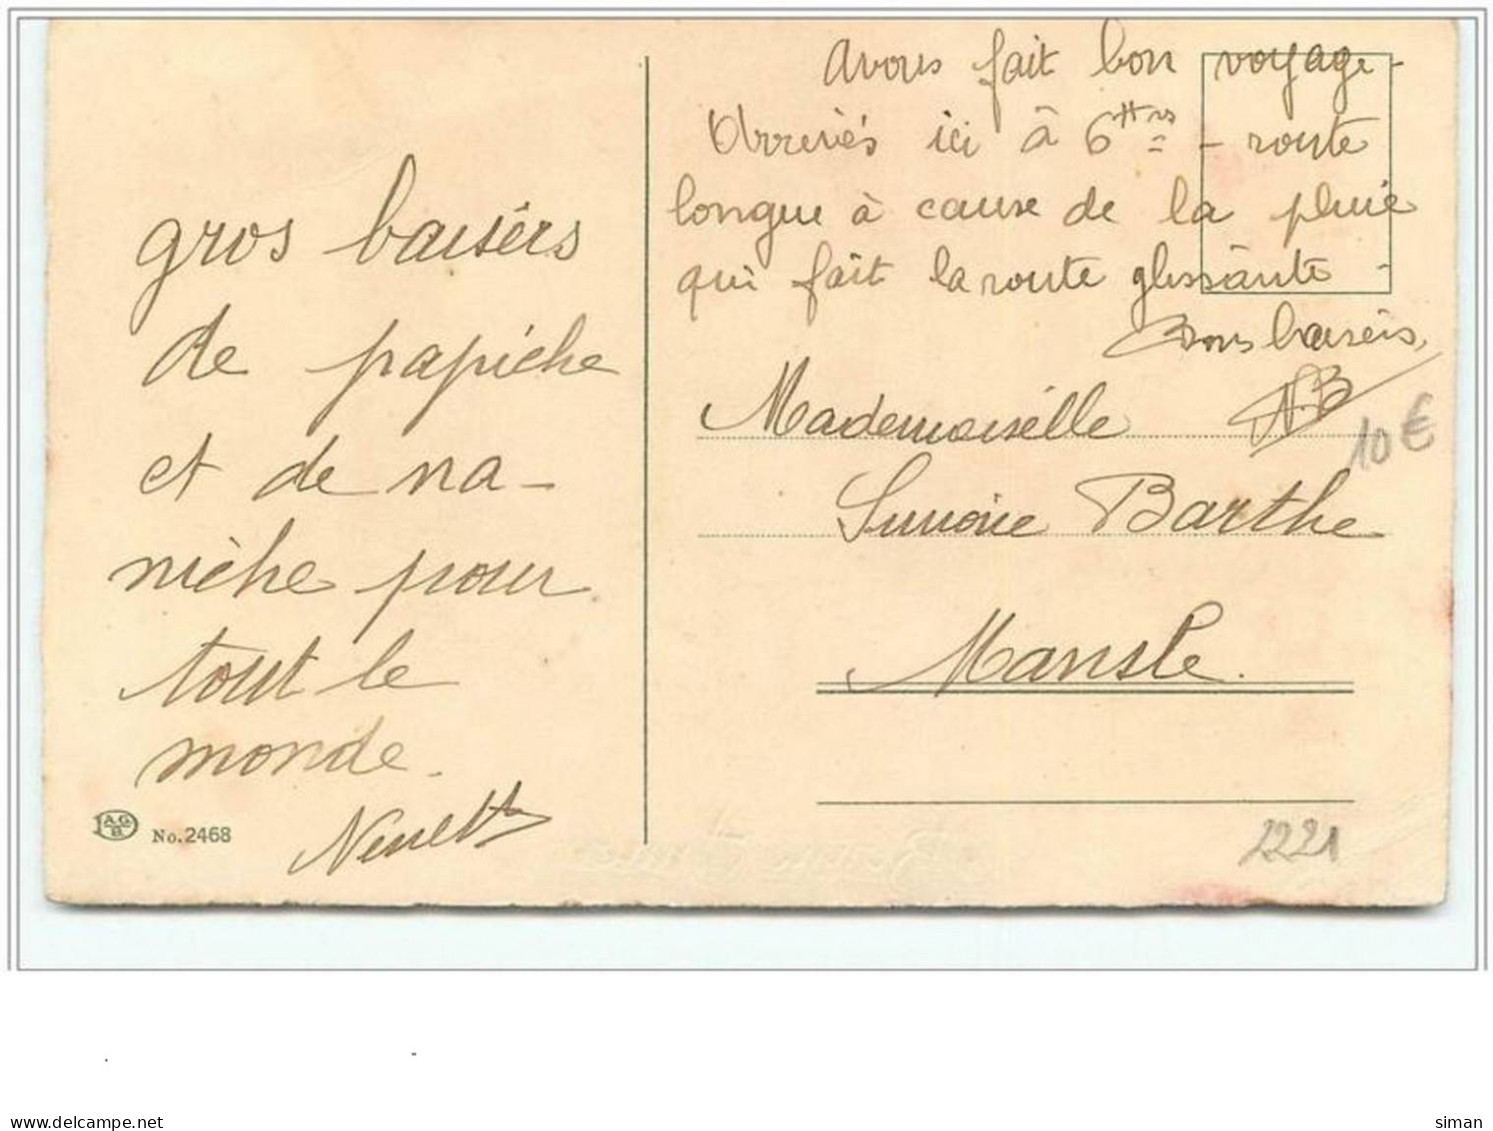 gros baisérs
de papiche
et de na-
niche pour
tout le
monde.
A.G.
B.
No.2468
avons fait bon voyage-
Arrivés ici à 6 Hrs - route
longue à cause de la pluie
qui fait la route glissante -
Bons baisers,
Mademoiselle
10 €
Simone Barthe
Mansle.
2221
www.delcampe.net
siman